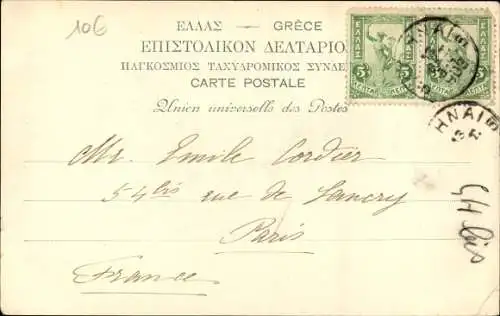 106
ΕΛΛΑΣ — GRÈCE
ΕΠΙΣΤΟΛΙΚΟΝ ΔΕΛΤΑΡΙΟ
ΠΑΓΚΟΣΜΙΟΣ ΤΑΧΥΔΡΟΜΙΚΟΣ ΣΥΝΔΕ
CARTE POSTALE
Union universelle des Postes
ΕΛΛΑΣ
5 5
ΛΕΠΤΑ ΛΕΠΤΑ
ΕΛΛΑΣ
5
ΛΕΠΤ
ΗΝΑΙ
Mr. Emile Cordier
54 bis rue de Lancry
Paris
France
54 bis